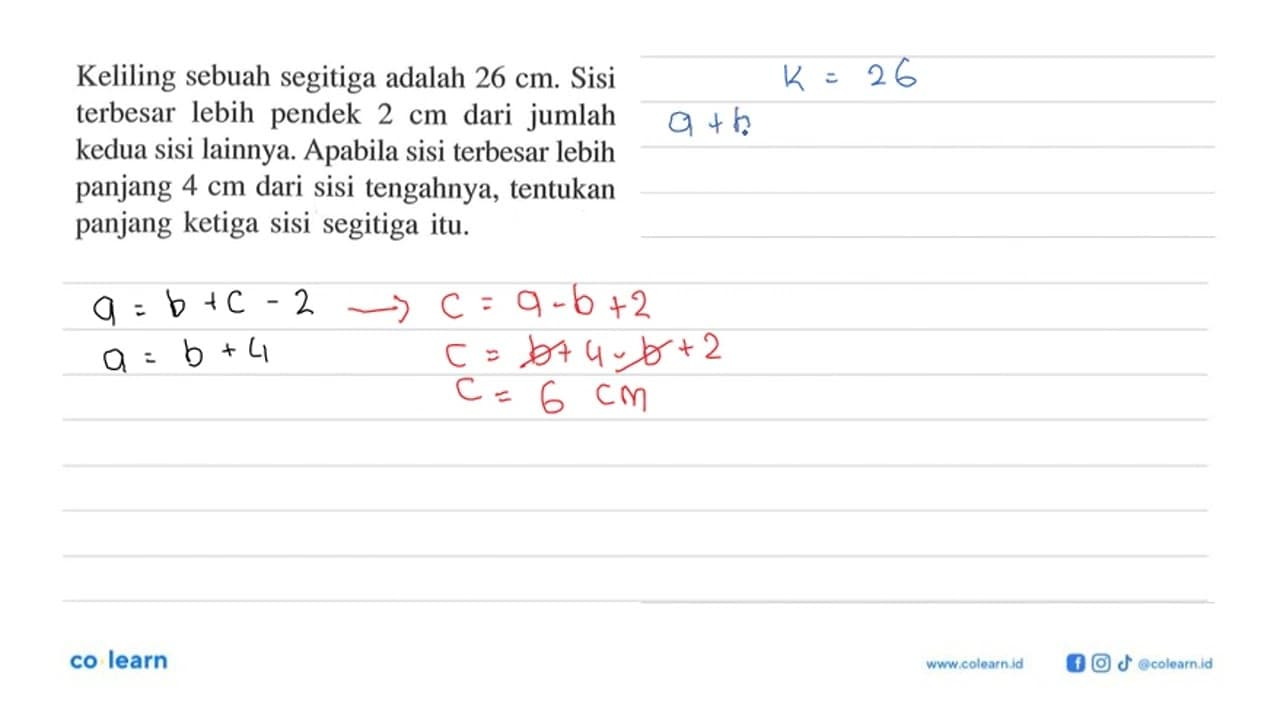 Keliling sebuah segitiga adalah 26 cm. Sisi
terbesar lebih pendek 2 cm dari jumlah
kedua sisi lainnya. Apabila sisi terbesar lebih
panjang 4 cm dari sisi tengahnya, tentukan
panjang ketiga sisi segitiga itu.
K = 26
a + b
a = b + c - 2 → c = a - b + 2
a = b + 4 c = b + 4 - b + 2
c = 6 cm
co learn
www.colearn.id @colearn.id